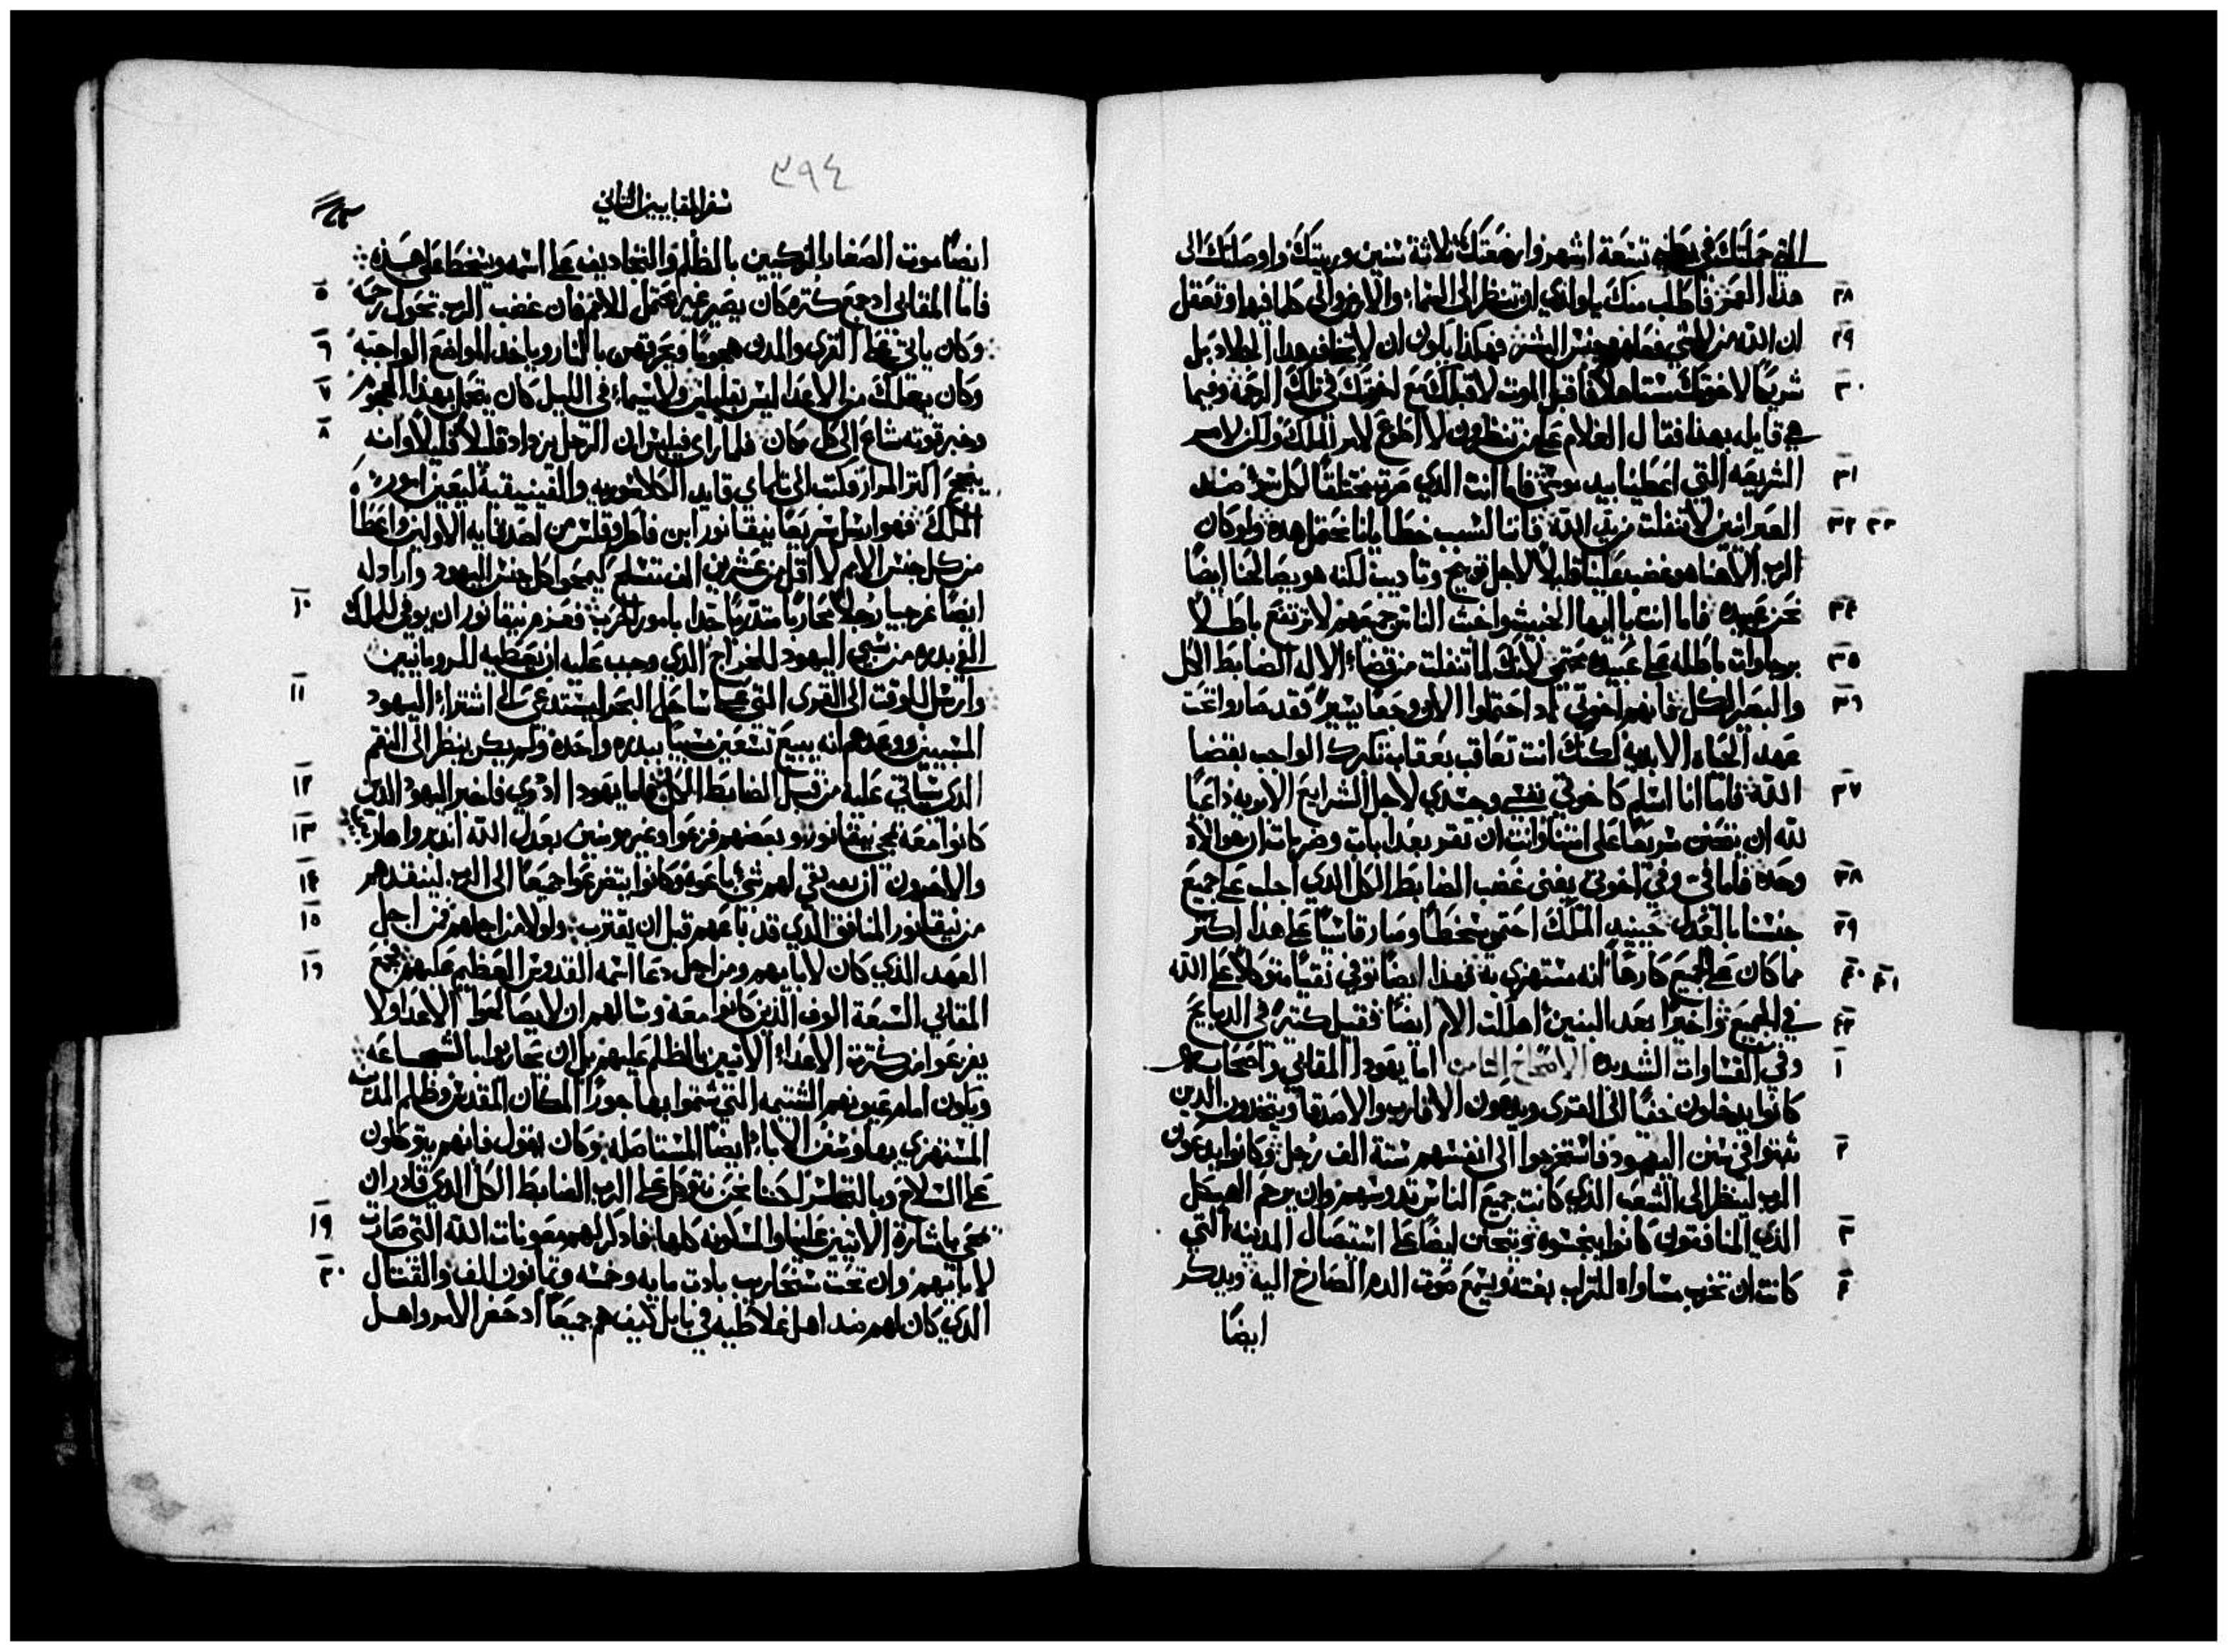 التي حملتك في بطني تسعة اشهر وارضعتك ثلاثة سنين وربيتك واوصلتك الى
٢٨ هذا العمر فاطلب منك ياولدي ان تنظر الى السماء والارض والى كلما فيها وتعقل
٢٩ ان الله من لاشي فعلهم وجنس البشر فهكذا يكون ان لاتخاف هدا الجلاد بل
٣٠ شريكا لاخوتك مستاهلا فاقبل الموت لاقبلك مع اخوتك في تلك الرحمة وفيما
هي قايله بهذا فقال الغلام على من تنظرون لا اطوع لامر الملك ولكن لامر
٣١ الشريعه التي اعطيناها بيد موسى فاما انت الذي صرت مختلقا لكل شر ضد
٣٢ ٣٣ العبرانيين لا تنفلت من يد الله فاننا لسبب خطايانا نحتمل هده ولو كان
الرب الاهنا هو غضب علينا قليلا لاجل توبيخ وتاديب لكنه هو يصالحنا ايضا
٣٤ نحن عبيده فاما انت يا ايها الخبيث واخبث الناس جميعهم لا ترتفع باطلا
٣٥ برجاوات باطله على عبيده محتمي لانك لم اتنفلت من قضاء الاله الضابط الكل
٣٦ والبصير الكل فانهم اخوتي اد احتملوا الان وجعا يسيرا فقد صاروا تحت
عهد الحياه الابديه لكنك انت تعاقب بعقاب تكبرك الواجب بقضا
٣٧ الله فاما انا اسلم كاخوتي نفسي وجسدي لاجل الشرايع الابويه داعيا
لله ان يتحنن سريعا على امتنا وانت ان تقر بعدابات وضربات ان هو الاه
٣٨ وحده فاما في وفي اخوتي يفنى غضب الضابط الكل الذي اجلب على جميع
٣٩ جنسنا بالعدل حينيد الملك احتمى سخطا وصار قاسيا على هذا اكتر
٤٠ ٤١ مما كان على الجميع كارها انه مستهزي به فهذا ايضا توفي نقيا متوكلا على الله
٤٢ في الجميع واخيرا بعد البنين اهلكت الام ايضا فقيل كتيرا في الدبايح
١ وفي القساوات الشديده الاصحاح الثامن اما يهودا المقابي واصحابه
كانوا يدخلون خفيا الى القرى ويدعون الاقارب والاصدقا ويتخدون الدين
٢ تبتوا في سنن اليهود فاستخرجوا الى انفسهم ستة الف رجل وكانوا يدعون
الرب لينظر الى الشعب الذي كانت جميع الناس تدوسهم وان يرحم الهيكل
٣ الذي المنافقون كانوا ينجسوه ويتحنن ايضا على استيصال المدينه التي
٤ كانت ان تخرب مساواه للتراب بغته ويسمع صوت الدم الصارخ اليه ويدكر
ايضا
٣٩٤
سفر المقابيين الثاني
ايضا موت الصغار الزكيين بالظلم والتجاديف على اسمه ويسخط على هذه
٥ فاما المقابي اد جمع كتره كان يصير غير محتمل للامم فان غضب الرب تحول رحمه
٦ وكان ياتي على القرى والمدن هجوما ويحرقهن بالنار وياخد المواضع الواجبه
٧ وكان يهلك من الاعدا ليس بقليلين ولاسيما في الليل كان يعمل بهذا الهجوم
٨ وخبر قوته شاع الى كل مكان فلما راى فيلبس ان الرجل يزداد قليلا قليلا وانه
ينجح اكتر المرار فكتب الى تلماي قايد الكالاسوريه والفينيقية ليعين امور
الملك فهو ارسل سريعا نيقانور ابن فاطروقلس من اصدقايه الاولين واعطا
من كل جنس الامم لا اقل من عشرين الف متسلح ليمحوا كل جنس اليهود واراد له
١٠ ايضا غرجيا رجلا محاربا متدربا جدا بامور الحرب فعزم نيقانور ان يوفي للملك
الفي بدره من سبي اليهود للخراج الذي وجب عليه ان يعطيه للرومانيين
١١ وارسل للوقت الى القرى التي على ساحل البحر ليستدعي الى اشتراء اليهود
المسبيين ووعدهم انه يبيع تسعين سبيا ببدره واحده ولم يكن ينظر الى النقم
١٢ الدي سياتي عليه من قبل الضابط الكل فلما يهودا ادري فاخبر اليهود الدين
١٣ كانوا معه بمجي نيقانور وبعضهم فزعوا وغير مومنين بعدل الله انديروا هاربين
١٤ والاخرون ان بعد بقي لهم شئ باعوه وكانوا يتضرعوا جميعا الى الرب لينقدهم
١٥ من نيقانور المنافق الذي قد باعهم قبل ان يقترب ولولا من اجلهم فمن اجل
١٦ العهد الذي كان لابايهم ومن اجل دعا اسمه القدوس العظيم عليهم فجمع
المقابي السبعة الوف الذين كانوا معه وسالهم ان لا يصالحوا الاعدا ولا
يفزعوا من كترة الاعداء الاتيين بالظلم عليهم بل ان يحاربوا بالشجاعه
ويكون امام عيونهم الشتيمه التي شتموا بها جورا المكان المقدس وظلم المدينه
المستهزي بها وسنن الاباء ايضا المستاصله وكان يقول فانهم يتوكلون
على السلاح وبالتجاسر لكننا نحن نتوكل على الرب الضابط الكل الذي قادر ان
١٩ يمحي باشارة الاتيين علينا والمسكونه كلها فادكر لهم معونات الله التي صارت
٢٠ لابايهم وان تحت سنحاريب بادت مايه وخمسه وتمانون الف والقتال
الذي كان لهم ضد اهل غلاطيه في بابل كيف هم جميعا اد حضر الامر واهل